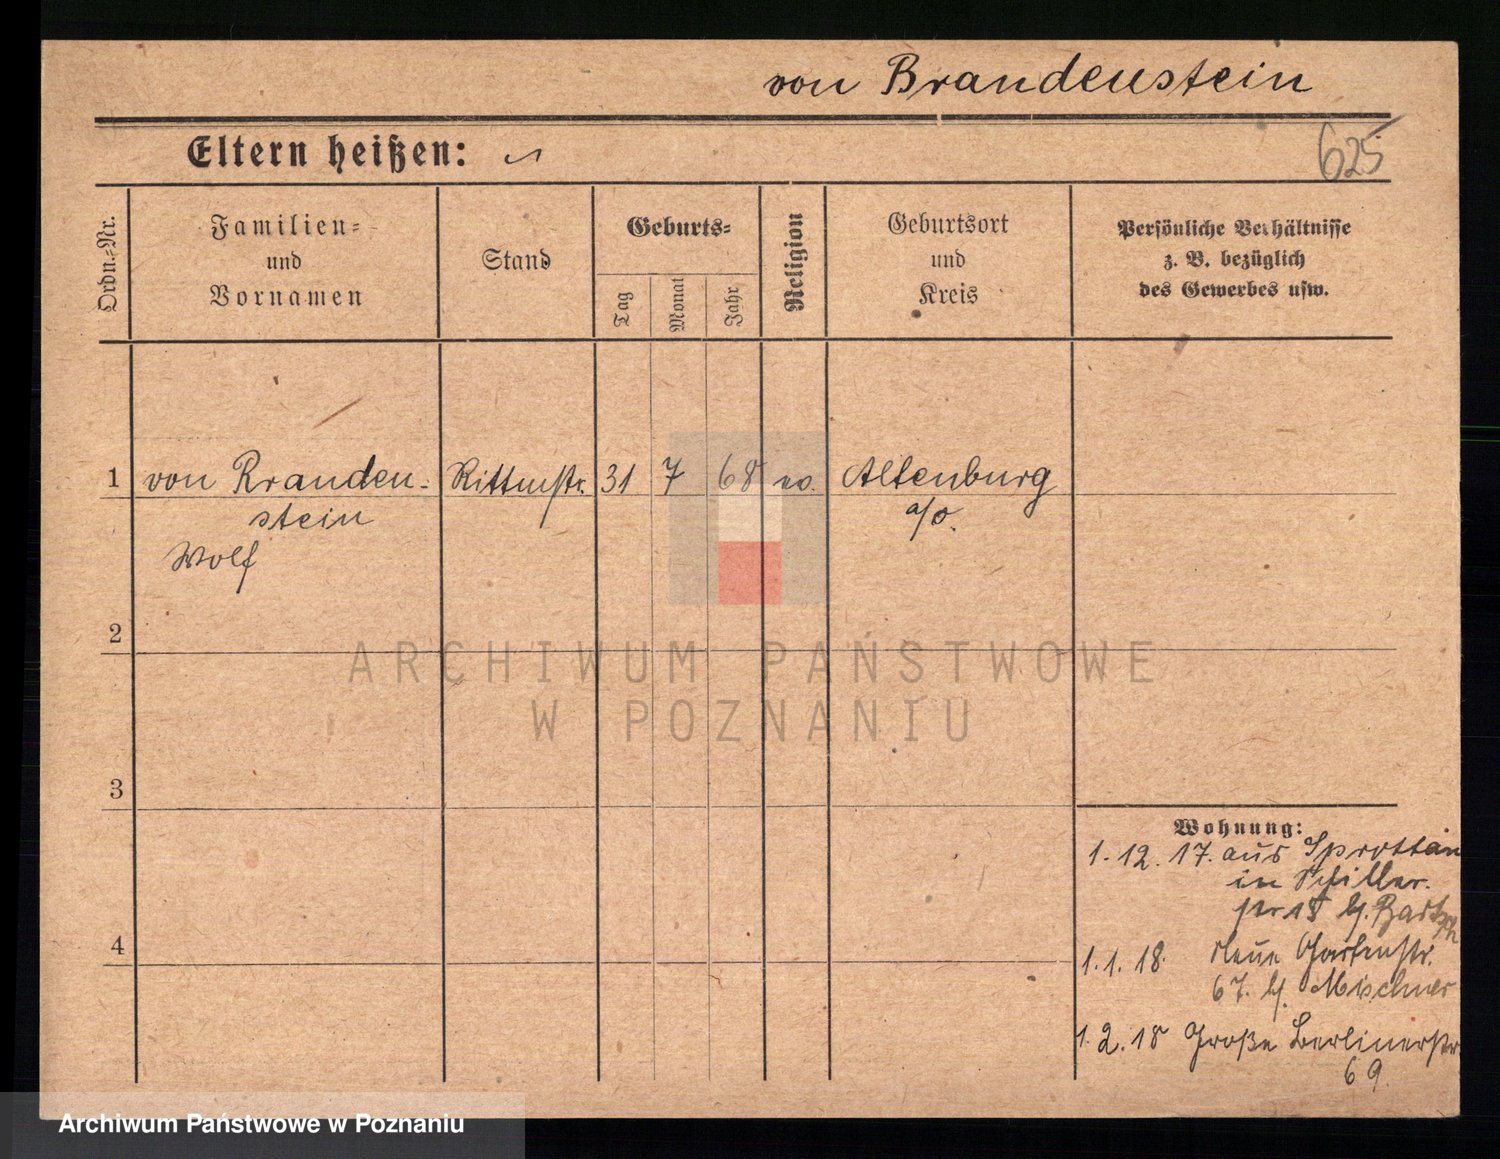 von Brandenstein
Eltern heißen:
625
Ordn.-Nr.
Familien-
und
Vornamen
Stand
Geburts-
Tag
Monat
Jahr
Religion
Geburtsort
und
Kreis
Persönliche Verhältnisse
z. B. bezüglich
des Gewerbes usw.
1 von Branden- Rittmstr. 31 7 68 ev. Altenburg
stein a/o.
Wolf
2
3
4
Wohnung:
1.12.17. aus Sprottau
in Schiller-
str 18 b/. Bartsch
1.1.18. Neue Gartenstr.
67. b/. Mischner
1.2.18 Große Berlinerstr.
69.
ARCHIWUM PAŃSTWOWE
W POZNANIU
Archiwum Państwowe w Poznaniu